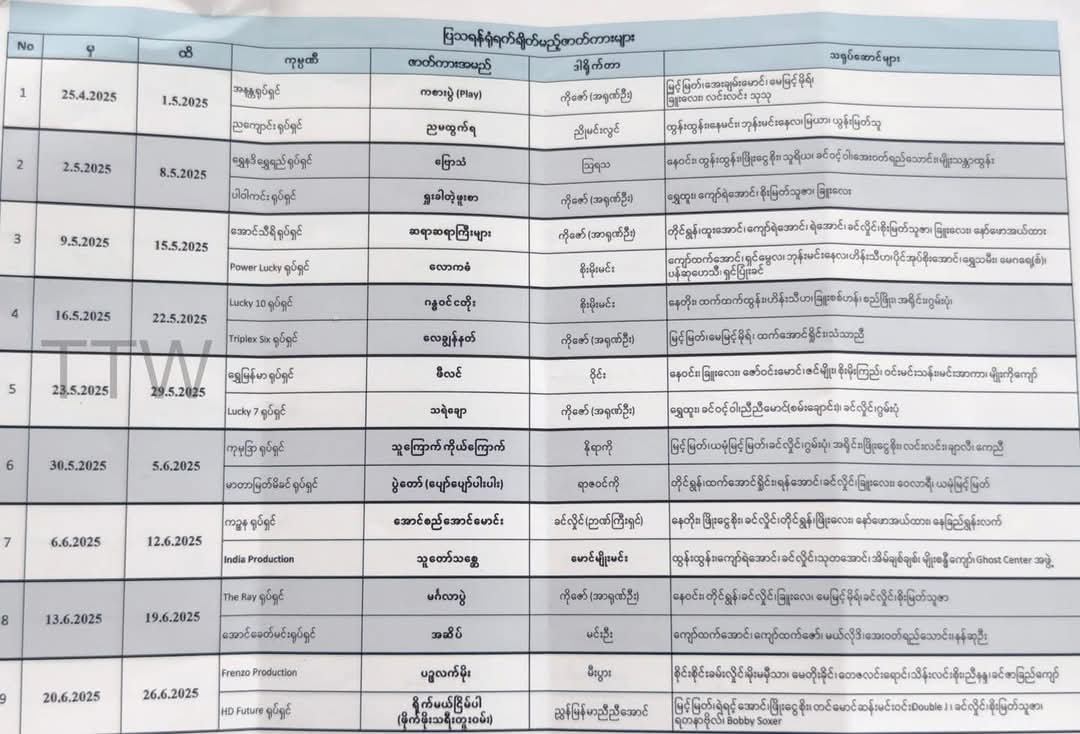 ပြသရန်ရုံရက်ချိတ်မည့်ဇာတ်ကားများ
No မှ ထိ ကုမ္ပဏီ ဇာတ်ကားအမည် ဒါရိုက်တာ သရုပ်ဆောင်များ
1 25.4.2025 1.5.2025 အနန္တရုပ်ရှင် ကစားပွဲ (Play) ကိုဇော် (အရုဏ်ဦး) မြင့်မြတ်၊ အေးချမ်းမောင်၊ မေမြင့်မိုရ်၊
ခြူးလေး၊ လင်းလင်း သုသု
ညကျောင်းရုပ်ရှင် ညမထွက်ရ ညိုမင်းလွင် ထွန်းထွန်း၊ နေမင်း၊ ဘုန်းမင်းနေလ၊ မြယာ၊ ယွန်းမြတ်သူ
2 2.5.2025 8.5.2025 ရွှေနဒီရွှေရည်ရုပ်ရှင် ဗြောသံ ဩရသ နေဝင်း၊ ထွန်းထွန်း၊ ဖြိုးငွေစိုး၊ သူရိယ၊ ခင်ဝင့်ဝါ၊ အေးဝတ်ရည်သောင်း၊ မျိုးသန္တာထွန်း
ပါဝါကင်း ရုပ်ရှင် ရှုးခါတဲ့ဖူးစာ ကိုဇော် (အရုဏ်ဦး) ရွှေထူး၊ ကျော်ရဲအောင်၊ စိုးမြတ်သူဇာ၊ ခြူးလေး
3 9.5.2025 15.5.2025 အောင်သီရိရုပ်ရှင် ဆရာဆရာကြီးများ ကိုဇော် (အာရုဏ်ဦး) တိုင်ရွန်၊ ထူးအောင်၊ ကျော်ရဲအောင်၊ ရဲအောင်၊ ခင်လှိုင်၊ စိုးမြတ်သူဇာ၊ ခြူးလေး၊ နော်ဖောအယ်ထား
Power Lucky ရုပ်ရှင် လောကဓံ စိုးမိုးမင်း ကျော်ထက်အောင်၊ ရှင်မွေလ၊ ဘုန်းမင်းနေလ၊ ဟိန်းသီဟ၊ ပိုင်အုပ်စိုးအောင်၊ ရွှေသမီး၊ မေဂရေ့(စ်)၊
ပန်ဆုဟေသီ၊ ရှင်ပြုံးခင်
4 16.5.2025 22.5.2025 Lucky 10 ရုပ်ရှင် ဂန္ဓဝင် ငတိုး စိုးမိုးမင်း နေတိုး၊ ထက်ထက်ထွန်း၊ ဟိန်းသီဟ၊ ခြူးစစ်ဟန်၊ စည်ဖြိုး၊ အရိုင်း၊ ဂွမ်းပုံ၊
Triplex Six ရုပ်ရှင် လေချွန်နတ် ကိုဇော် (အရုဏ်ဦး) မြင့်မြတ်၊ မေမြင့်မိုရ်၊ ထက်အောင်ရှိုင်း၊ သံသာညီ
5 23.5.2025 29.5.2025 ရွှေမြန်မာ ရုပ်ရှင် မီလင် ဝိုင်း နေဝင်း၊ ခြူးလေး၊ ဇော်ဝင်းမောင်၊ ဇင်မျိုး၊ စိုးမိုးကြည်၊ ဝင်းမင်းသန်း၊ မင်းအာကာ၊ မျိုးကိုကျော်
Lucky 7 ရုပ်ရှင် သရဲချော ကိုဇော် (အရုဏ်ဦး) ရွှေထူး၊ ခင်ဝင့်ဝါ၊ ညီညီမောင်(စမ်းချောင်း)၊ ခင်လှိုင်၊ ဂွမ်းပုံ
6 30.5.2025 5.6.2025 ကုမုဒြာ ရုပ်ရှင် သူကြောက် ကိုယ်ကြောက် နိုရာကို မြင့်မြတ်၊ ယမုံမြင့်မြတ်၊ ခင်လှိုင်၊ ဂွမ်းပုံ၊ အရိုင်း၊ ဖြိုးငွေစိုး၊ လင်းလင်း၊ ချာလီ၊ ကေညီ
မာတာမြတ်မိခင် ရုပ်ရှင် ပွဲတော် (ပျော်ပျော်ပါးပါး) ရာဇဝင်ကို တိုင်ရွန်၊ ထက်အောင်ရှိုင်း၊ ရန်အောင်၊ ခင်လှိုင်၊ ခြူးလေး၊ ဝေလာရီ၊ ယမုံမြင့်မြတ်
7 6.6.2025 12.6.2025 ကဉ္စန ရုပ်ရှင် အောင်စည်အောင်မောင်း ခင်လှိုင် (ဉာဏ်ကြီးရှင်) နေတိုး၊ ဖြိုးငွေစိုး၊ ခင်လှိုင်၊ တိုင်ရွန်၊ ဖြိုးလေး၊ နော်ဖောအယ်ထား၊ နေခြည်ရွှန်းလက်
India Production သူတော်သစ္စေ မောင်မျိုးမင်း ထွန်းထွန်း၊ ကျော်ရဲအောင်၊ ခင်လှိုင်၊ သုတအောင်၊ အိမ့်ချစ်ချစ်၊ မျိုးစန္ဒီကျော်၊ Ghost Center အဖွဲ့
8 13.6.2025 19.6.2025 The Ray ရုပ်ရှင် မင်္ဂလာပွဲ ကိုဇော် (အာရုဏ်ဦး) နေဝင်း၊ တိုင်ရွန်၊ ခင်လှိုင်၊ ခြူးလေး၊ မေမြင့်မိုရ်၊ ခင်လှိုင်၊ စိုးမြတ်သူဇာ
အောင်ခေတ်မင်းရုပ်ရှင် အဆိပ် မင်းဦး ကျော်ထက်အောင်၊ ကျော်ထက်ဇော်၊ မယ်လိုဒီ၊ အေးဝတ်ရည်သောင်း၊ နန်ဆုဦး
9 20.6.2025 26.6.2025 Frenzo Production ပဥ္စလက်မိုး မီးပွား စိုင်းစိုင်းခမ်းလှိုင်၊ မိုးမမှီသာ၊ မေတိုးခိုင်၊ တေဇလင်းရောင်၊ သိန်းလင်းစိုး၊ ညီနန္ဒ၊ ခင်ဇာခြည်ကျော်
HD Future ရုပ်ရှင် ရိုက်မယ်ငြိမ်ပါ
(ဖိုက်ဖိုးသရီးတူးဝမ်း) ညွှန်မြန်မာညီညီအောင် မြင့်မြတ်၊ ရဲရင့်အောင်၊ ဖြိုးငွေစိုး၊ တင်မောင်ဆန်းမင်းဝင်း၊ Double J၊ ခင်လှိုင်၊ စိုးမြတ်သူဇာ၊
ရတနာဗိုလ်၊ Bobby Soxer
TTW